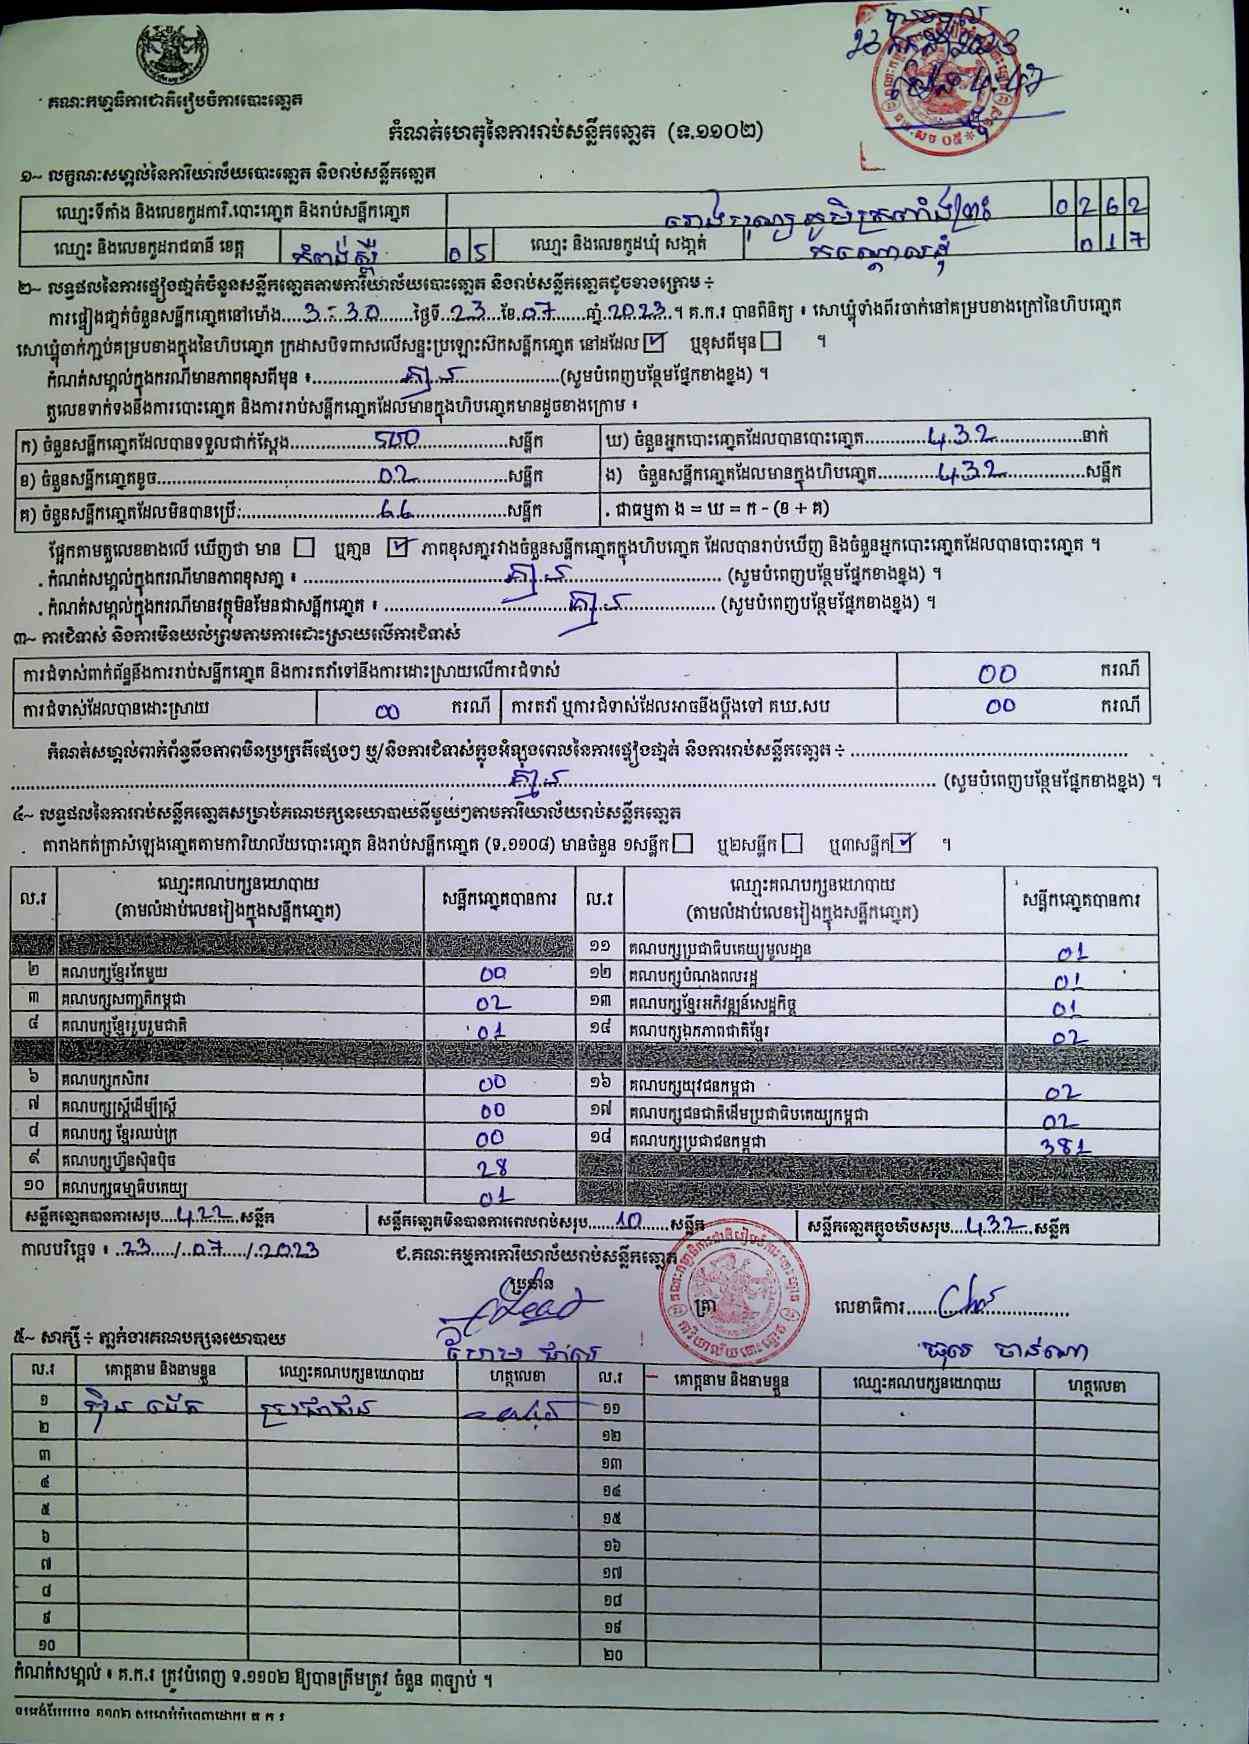 គណៈកម្មាធិការជាតិរៀបចំការបោះឆ្នោត
កំណត់ហេតុនៃការរាប់សន្លឹកឆ្នោត (ទ.១១០២)
១~ លក្ខណៈសម្គាល់នៃការិយាល័យបោះឆ្នោត និងរាប់សន្លឹកឆ្នោត
ឈ្មោះទីតាំង និងលេខកូដការិ.បោះឆ្នោត និងរាប់សន្លឹកឆ្នោត 0262
ឈ្មោះ និងលេខកូដរាជធានី ខេត្ត កំពង់ស្ពឺ 05 ឈ្មោះ និងលេខកូដឃុំ សង្កាត់ កណ្តោលដុំ 017
២~ លទ្ធផលនៃការផ្ទៀងផ្ទាត់ចំនួនសន្លឹកឆ្នោតតាមការិយាល័យបោះឆ្នោត និងរាប់សន្លឹកឆ្នោតដូចខាងក្រោម ÷
ការផ្ទៀងផ្ទាត់ចំនួនសន្លឹកឆ្នោតនៅម៉ោង 3-30 ថ្ងៃទី 23 ខែ 07 ឆ្នាំ 2023 ។ គ.ក.រ បានពិនិត្យ ៖ សោឃ្នុំទាំងពីរចាក់នៅគម្របខាងក្រៅនៃហិបឆ្នោត
សោឃ្នុំចាក់ភ្ជាប់គម្របខាងក្នុងនៃហិបឆ្នោត ក្រដាសបិទពាសលើសន្ទះប្រឡោះស៊កសន្លឹកឆ្នោត នៅដដែល ☑ ឬខុសពីមុន ☐ ។
កំណត់សម្គាល់ក្នុងករណីមានភាពខុសពីមុន ៖ គ្មាន (សូមបំពេញបន្ថែមផ្នែកខាងខ្នង) ។
តួលេខទាក់ទងនឹងការបោះឆ្នោត និងការរាប់សន្លឹកឆ្នោតដែលមានក្នុងហិបឆ្នោតមានដូចខាងក្រោម ៖
ក) ចំនួនសន្លឹកឆ្នោតដែលបានទទួលជាក់ស្តែង 500 សន្លឹក ឃ) ចំនួនអ្នកបោះឆ្នោតដែលបានបោះឆ្នោត 432 នាក់
ខ) ចំនួនសន្លឹកឆ្នោតខូច 02 សន្លឹក ង) ចំនួនសន្លឹកឆ្នោតដែលមានក្នុងហិបឆ្នោត 432 សន្លឹក
គ) ចំនួនសន្លឹកឆ្នោតដែលមិនបានប្រើ: 66 សន្លឹក . ជាធម្មតា ង = ឃ = ក - (ខ + គ)
ផ្អែកតាមតួលេខខាងលើ ឃើញថា មាន ☐ ឬគ្មាន ☑ ភាពខុសគ្នារវាងចំនួនសន្លឹកឆ្នោតក្នុងហិបឆ្នោត ដែលបានរាប់ឃើញ និងចំនួនអ្នកបោះឆ្នោតដែលបានបោះឆ្នោត ។
. កំណត់សម្គាល់ក្នុងករណីមានភាពខុសគ្នា ៖ គ្មាន (សូមបំពេញបន្ថែមផ្នែកខាងខ្នង) ។
. កំណត់សម្គាល់ក្នុងករណីមានវត្ថុមិនមែនជាសន្លឹកឆ្នោត ៖ គ្មាន (សូមបំពេញបន្ថែមផ្នែកខាងខ្នង) ។
៣~ ការជំទាស់ និងការមិនយល់ព្រមតាមការដោះស្រាយលើការជំទាស់
ការជំទាស់ពាក់ព័ន្ធនឹងការរាប់សន្លឹកឆ្នោត និងការតវ៉ាទៅនឹងការដោះស្រាយលើការជំទាស់ 00 ករណី
ការជំទាស់ដែលបានដោះស្រាយ 00 ករណី ការតវ៉ា ឬការជំទាស់ដែលអាចនឹងប្តឹងទៅ គឃ.សប 00 ករណី
កំណត់សម្គាល់ពាក់ព័ន្ធនឹងភាពមិនប្រក្រតីផ្សេងៗ ឬ/និងការជំទាស់ក្នុងអំឡុងពេលនៃការផ្ទៀងផ្ទាត់ និងការរាប់សន្លឹកឆ្នោត ÷
គ្មាន (សូមបំពេញបន្ថែមផ្នែកខាងខ្នង) ។
៤~ លទ្ធផលនៃការរាប់សន្លឹកឆ្នោតសម្រាប់គណបក្សនយោបាយនីមួយៗតាមការិយាល័យរាប់សន្លឹកឆ្នោត
តារាងកត់ត្រាសំឡេងឆ្នោតតាមការិយាល័យបោះឆ្នោត និងរាប់សន្លឹកឆ្នោត (ទ.១១០៨) មានចំនួន ១សន្លឹក ☐ ឬ២សន្លឹក ☐ ឬ៣សន្លឹក ☑ ។
ល.រ ឈ្មោះគណបក្សនយោបាយ (តាមលំដាប់លេខរៀងក្នុងសន្លឹកឆ្នោត) សន្លឹកឆ្នោតបានការ ល.រ ឈ្មោះគណបក្សនយោបាយ (តាមលំដាប់លេខរៀងក្នុងសន្លឹកឆ្នោត) សន្លឹកឆ្នោតបានការ
១១ គណបក្សប្រជាធិបតេយ្យមូលដ្ឋាន 01
២ គណបក្សខ្មែរតែមួយ 00 ១២ គណបក្សបំណងពលរដ្ឋ 01
៣ គណបក្សសញ្ជាតិកម្ពុជា 02 ១៣ គណបក្សខ្មែរអភិវឌ្ឍន៍សេដ្ឋកិច្ច 01
៤ គណបក្សខ្មែររួបរួមជាតិ 01 ១៤ គណបក្សឯកភាពជាតិខ្មែរ 02
៦ គណបក្សកសិករ 00 ១៦ គណបក្សយុវជនកម្ពុជា 02
៧ គណបក្សស្ត្រីដើម្បីស្ត្រី 00 ១៧ គណបក្សជនជាតិដើមប្រជាធិបតេយ្យកម្ពុជា 02
៨ គណបក្ស ខ្មែរឈប់ក្រ 00 ១៨ គណបក្សប្រជាជនកម្ពុជា 381
៩ គណបក្សហ៊្វុនស៊ិនប៉ិច 28
១០ គណបក្សធម្មាធិបតេយ្យ 01
សន្លឹកឆ្នោតបានការសរុប 422 សន្លឹក សន្លឹកឆ្នោតមិនបានការពេលរាប់សរុប 10 សន្លឹក សន្លឹកឆ្នោតក្នុងហិបសរុប 432 សន្លឹក
កាលបរិច្ឆេទ ៖ 23/07/2023 ជ.គណៈកម្មការការិយាល័យរាប់សន្លឹកឆ្នោត
ប្រធាន ត្រា លេខាធិការ
៥~ សាក្សី ÷ ភ្នាក់ងារគណបក្សនយោបាយ
ល.រ គោត្តនាម និងនាមខ្លួន ឈ្មោះគណបក្សនយោបាយ ហត្ថលេខា ល.រ គោត្តនាម និងនាមខ្លួន ឈ្មោះគណបក្សនយោបាយ ហត្ថលេខា
១ ប្រជាជន ១១
២ ១២
៣ ១៣
៤ ១៤
៥ ១៥
៦ ១៦
៧ ១៧
៨ ១៨
៩ ១៩
១០ ២០
កំណត់សម្គាល់ ៖ គ.ក.រ ត្រូវបំពេញ ទ.១១០២ ឱ្យបានត្រឹមត្រូវ ចំនួន ៣ច្បាប់ ។